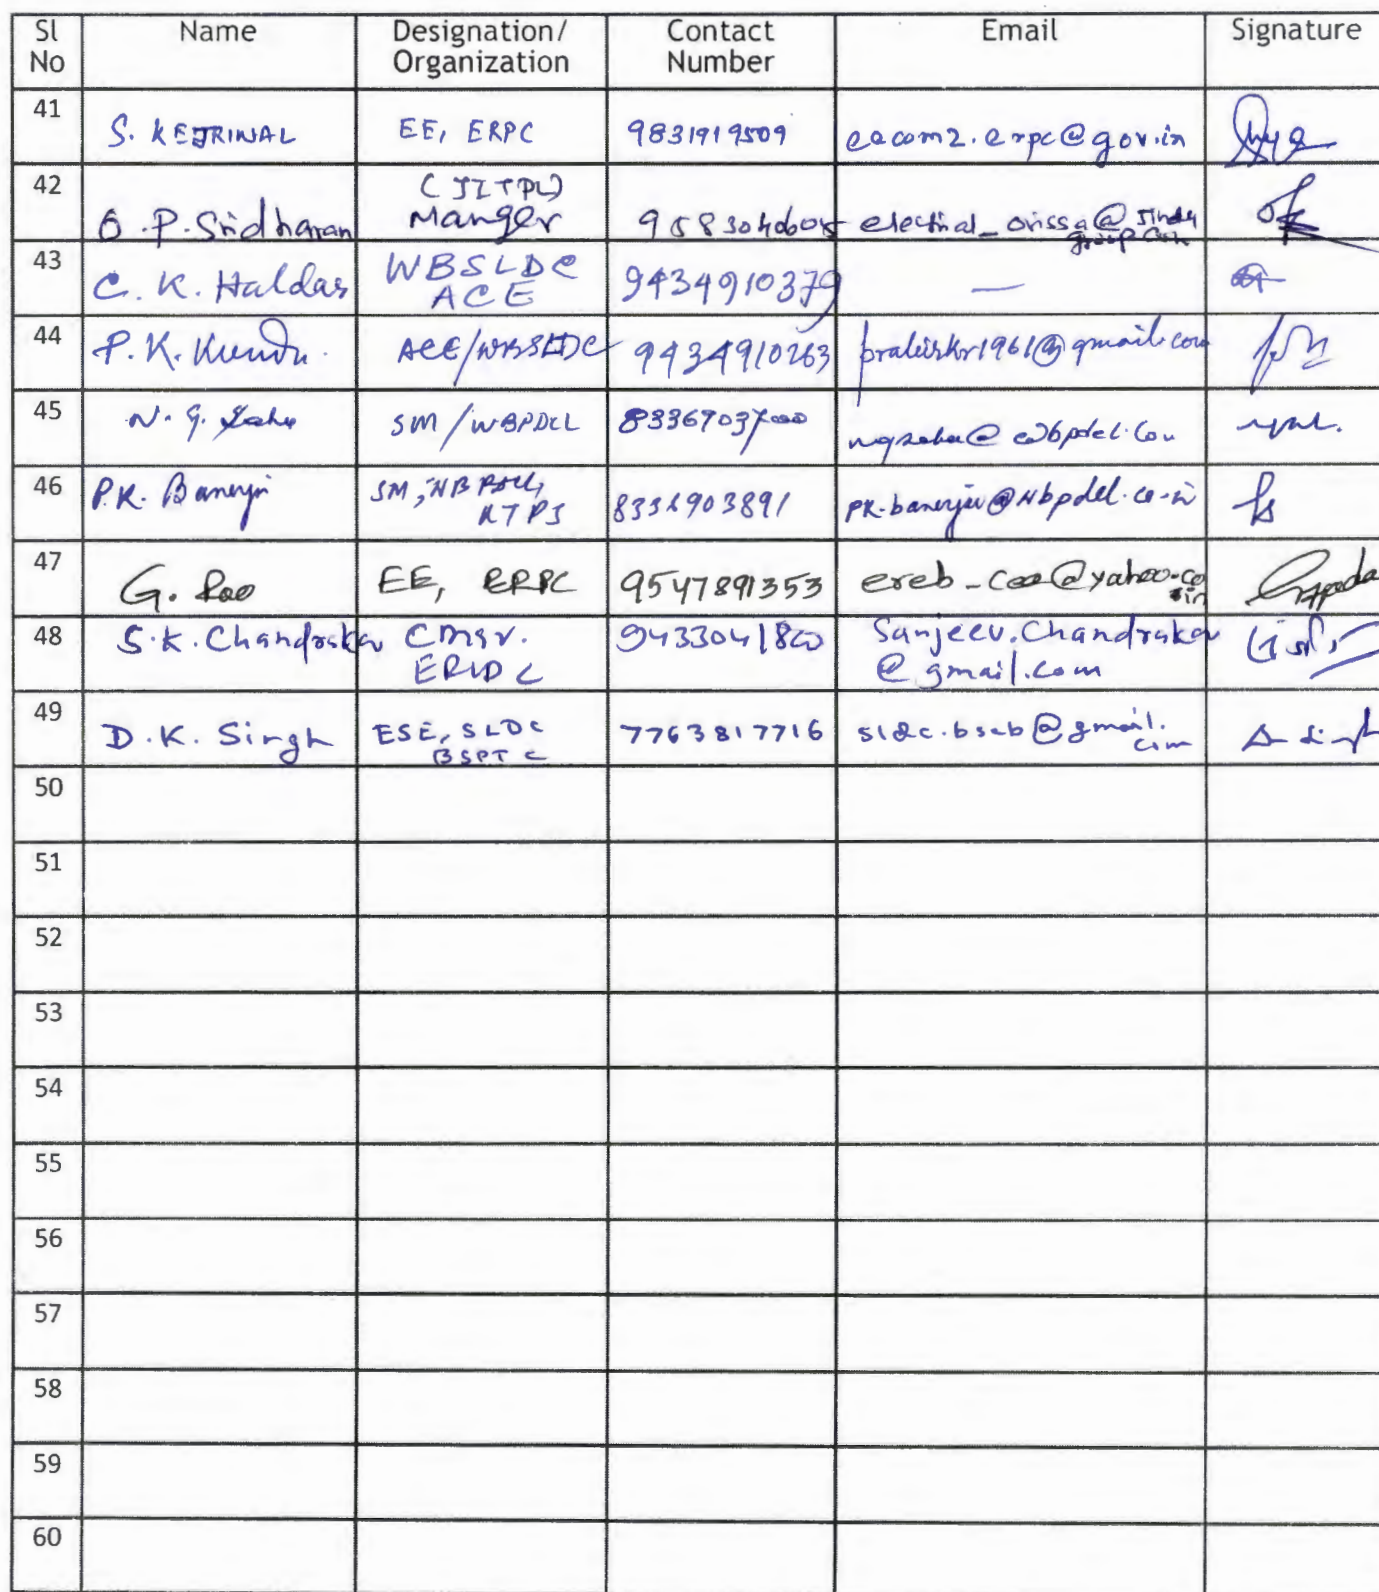 Sl No Name Designation/ Organization Contact Number Email Signature
41 S. KEJRIWAL EE, ERPC 9831919509 eecom2.erpc@gov.in
42 O.P. Sridharan (JITPL) Manger electrial_orissa@jindal group.com
43 C. K. Haldar WBSLDC ACE 9434910379 —
44 P. K. Kundu. ACE/WBSLDC 9434910263
45 N. G. Saha SM/WBPDCL
46 P.K. Banerji SM, WBPDCL, KTPS 8336903891 pk.banerjee@wbpdcl.co.in
47 G. Rao EE, ERPC 9547891353 ereb_cea@yahoo.co.in
48 S.K. Chandrakar CMgr. ERLDC Sanjeev.Chandrakar @gmail.com
49 D.K. Singh ESE, SLDC BSPTC 7763817716 sldc.bseb@gmail.com
50
51
52
53
54
55
56
57
58
59
60